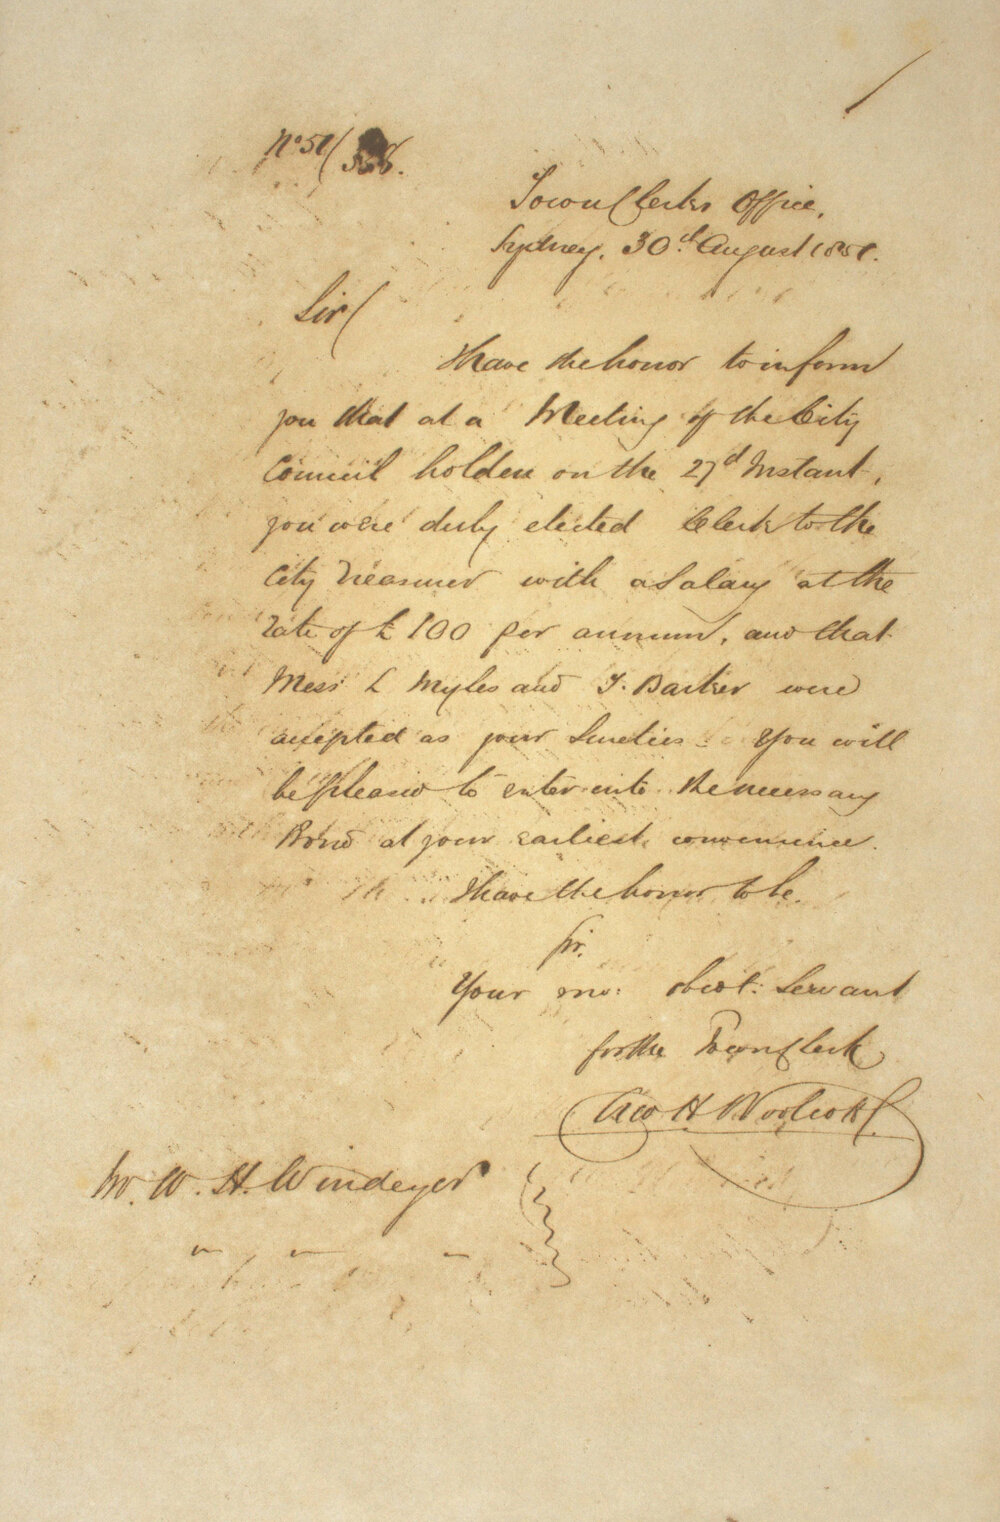 No 51/538.
Town Clerks Office,
Sydney. 30th August 1851.
Sir/
I have the honor to inform
you that at a Meeting of the City
Council holden on the 27th Instant,
you were duly elected Clerk to the
City Treasurer with a Salary at the
rate of £100 per annum, and that
Mess L Myles and T. Barker were
accepted as your Sureties. You will
be pleased to enter into the necessary
Bond at your earliest convenience.
I have the honor to be.
Sir.
Your mo: obedt: Servant
for the Town Clerk
Geo H Woolcott
Mr. W. H. Windeyer